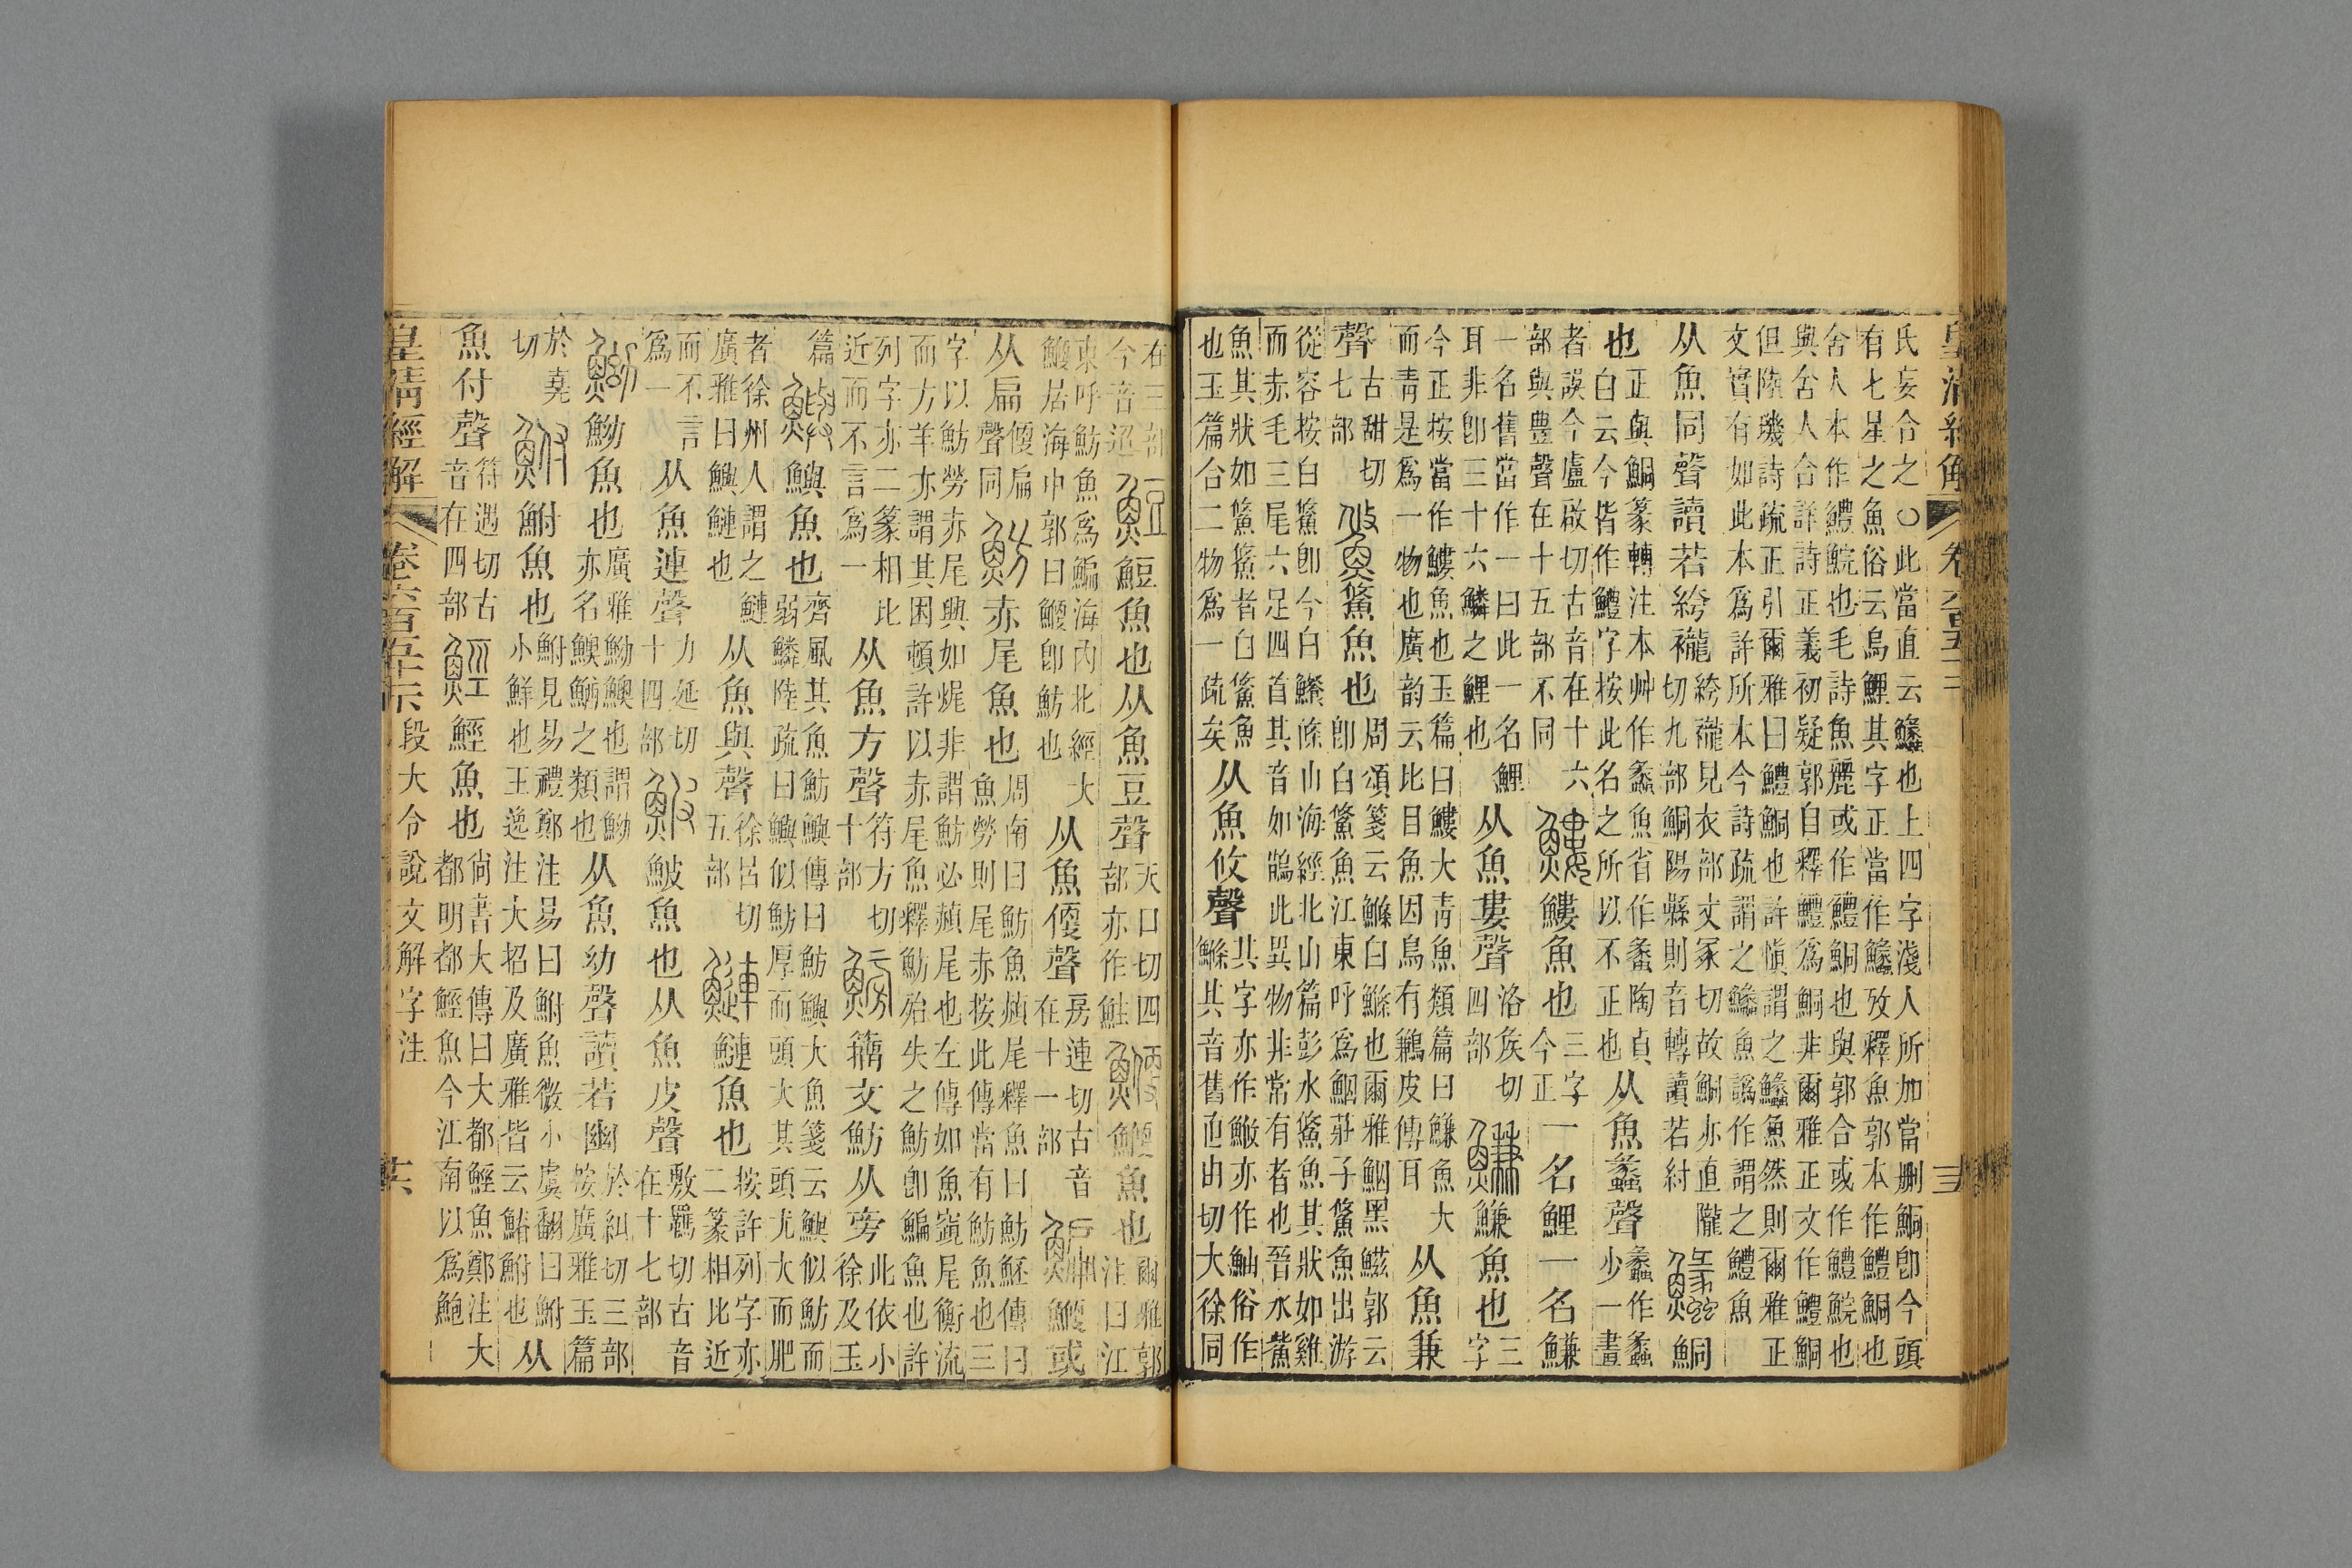 皇清經解 卷六百五十三
氏妄合之○此當直云𩽵也上四字淺人所加當刪鮦卽今頭
有七星之魚俗云烏鯉其字正當作𩽵攷釋魚郭本作鱧鮦也
舍人本作鱧鯇也毛詩魚麗或作鱧鮦也與郭合或作鱧鯇也
與舍人合詳詩正義初疑郭自釋鱧爲鮦非爾雅正文作鱧鮦
但陸璣詩疏正引爾雅曰鱧鮦也許愼謂之𩽵魚然則爾雅正
文實有如此本爲許所本今詩疏謂之𩽵魚譌作謂之鱧魚
从魚同聲讀若絝襱
絝襱見衣部丈冢切故鮦亦直隴
切九部鮦陽縣則音轉讀若紂
𩽵鮦
也
正與鮦篆轉注本艸作蠡魚省作蠡陶貞
白云今皆作鱧字按此名之所以不正也
从魚蠡聲
蠡作蠡
少一畫
者誤今盧啟切古音在十六
部與豊聲在十五部不同
䱾䱾魚也
三字
今正
一名鯉一名鰜
一名舊當作一曰此一名鯉
耳非卽三十六鱗之鯉也
从魚婁聲
洛矦切
四部
鰜鰜魚也
三
字
今正按當作䱾魚也玉篇曰䱾大青魚類篇曰鰜魚大
而青是爲一物也廣韵云比目魚因鳥有鶼皮傅耳
从魚兼
聲
古甜切
七部
鯈鯈魚也
周頌箋云鰷白鰷也爾雅鮂黑鰦郭云
卽白鯈魚江東呼爲鮂莊子鯈魚出游
從容按白鯈卽今白䱗條山海經北山篇彭水鯈魚其狀如雞
而赤毛三尾六足四首其音如鵲此異物非常有者也晉水鮆
魚其狀如鯈鮆者白鯈魚
也玉篇合二物爲一疏矣
从魚攸聲
其字亦作䱗亦作鮋俗作
鰷其音舊直由切大徐同
在三部
今音迢
䱏䱏魚也从魚豆聲
天口切四
部亦作鮏
鯾鯾魚也
爾雅郭
注曰江
東呼魴魚爲鯿海內北經大
鯾居海中郭曰鯾卽魴也
从魚㪅聲
房連切古音
在十一部
鯿鯾或
从扁
㪅扁
聲同
魴赤尾魚也
周南曰魴魚赬尾釋魚曰魾傳曰
魚勞則尾赤按此傳當有魴魚也三
字以魴勞赤尾興如𤈦非謂魴必赬尾也左傳如魚竀尾衡流
而方羊亦謂其困頓許以赤尾魚釋魴殆失之魴卽鯿魚也許
列字亦二篆相比
近而不言爲一
从魚方聲
符方切
十部
籒文魴从㫄
此依小
徐及玉
篇
鱮鱮魚也
齊風其魚魴鱮傳曰魴鱮大魚箋云鱮似魴而
弱鱗陸疏曰鱮似魴厚而頭大其頭尤大而肥
者徐州人謂之鰱
廣雅曰鱮鰱也
从魚與聲
徐呂切
五部
鰱鰱魚也
按許列字亦
二篆相比近
而不言
爲一
从魚連聲
力延切
十四部
鮍鮍魚也从魚皮聲
敷羈切古音
在十七部
䱂䱂魚也
廣雅䱂也謂䱂
亦名鰌之類也
从魚幼聲讀若幽
於糾切三部
按廣雅玉篇
於堯
切
鮒鮒魚也
鮒見易禮鄭注易曰鮒魚微小虞翻曰鮒
小鮮也王逸注大招及廣雅皆云鰿鮒也
从
魚付聲
符遇切古
音在四部
魚也
尙書大傳曰大都魚鄭注大
都明都魚今江南以爲鮑
皇清經解 卷六百五十六 段大令說文解字注